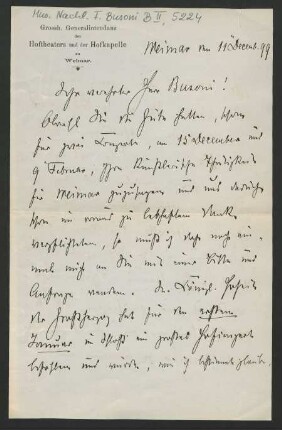 Mus. Nachl. F. Busoni B II, 5224
Grossh. Generalintendanz
des
Hoftheaters und der Hofkapelle
zu
Weimar.
Weimar den 11 Decemb. 99
Sehr verehrter Herr Busoni!
Obwohl Sie die Güte hatten, schon
für zwei Concerte, am 15 December und
9 Februar, Ihre künstlerische Thätigkeit
für Weimar zuzusagen und uns dadurch
schon im voraus zu lebhaftem Dank
verpflichteten, so muß ich doch noch ein-
mal mich an Sie mit einer Bitte und
Anfrage wenden. Se. Königl. Hoheit
der Großherzog hat für den ersten
Januar im Schloß ein großes Hofconcert
befohlen und würde, wie ich bestimmt glaube